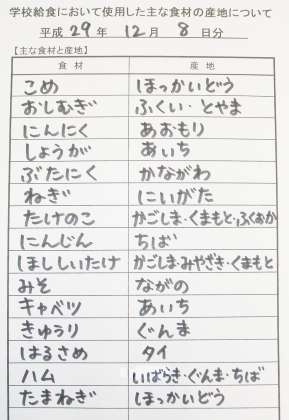 学校給食において使用した主な食材の産地について
平成 29 年 12 月 8 日分
【主な食材と産地】
食材 産地
こめ ほっかいどう
おしむぎ ふくい・とやま
にんにく あおもり
しょうが あいち
ぶたにく かながわ
ねぎ にいがた
たけのこ かごしま・くまもと・ふくおか
にんじん ちば
ほししいたけ かごしま・みやざき・くまもと
みそ ながの
キャベツ あいち
きゅうり ぐんま
はるさめ タイ
ハム いばらき・ぐんま・ちば
たまねぎ ほっかいどう